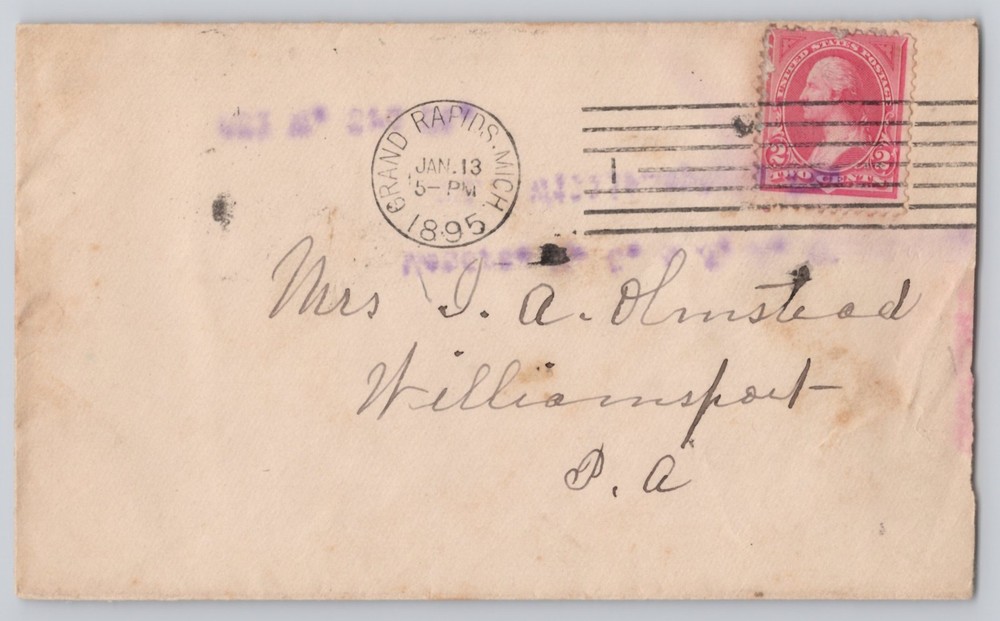 GRAND RAPIDS. MICH.
JAN. 13
5-PM
1895
1
UNITED STATES POSTAGE
2 2
TWO CENTS
Mrs J. A. Olmstead
Williamsport
P. A